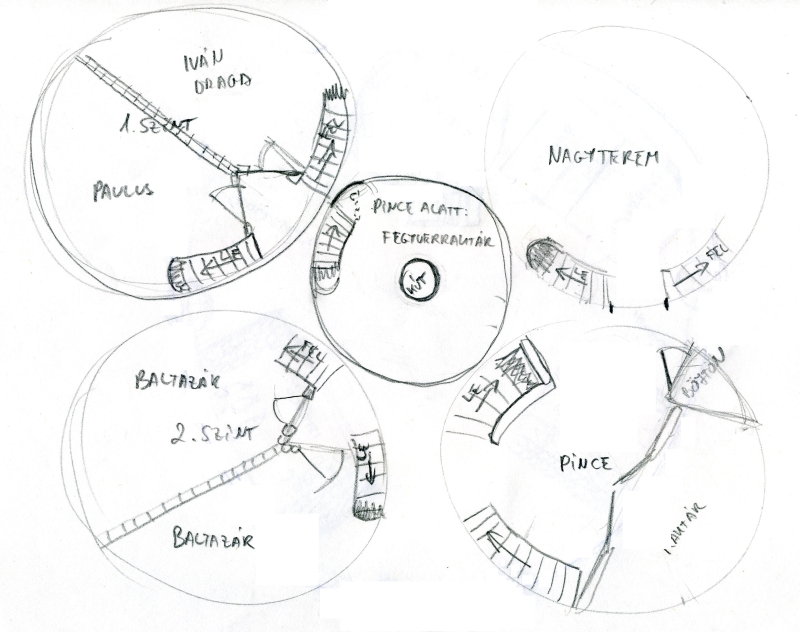 IVÁN
DRAGA
1. SZINT
PAULUS
LE
PINCE ALATT:
FEGYVERRAKTÁR
KÚT
NAGYTEREM
LE
FEL
BALTAZÁR
FEL
2. SZINT
LE
BALTAZÁR
LE
BÖRTÖN
PINCE